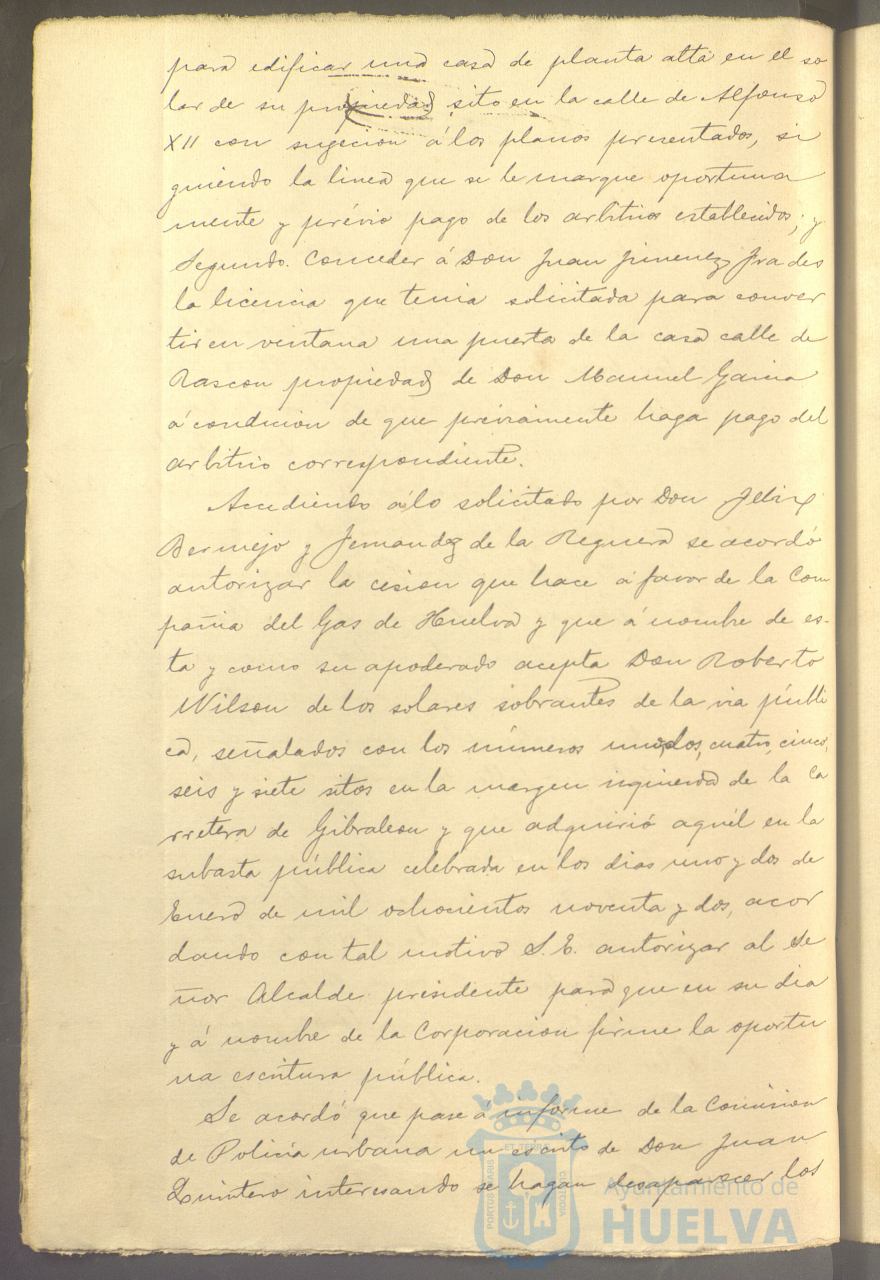 para edificar una casa de planta alta en el so
lar de su propiedad, sito en la calle de Alfonso
XII con sugecion á los planos presentados, si
guiendo la linea que se le marque oportuna
mente y prévio pago de los arbitrios establecidos; y
Segundo. Conceder á Don Juan Jimenez Prades
la licencia que tenia solicitada para conver
tir en ventana una puerta de la casa calle de
Rascon propiedad de Don Manuel Garcia
á condicion de que préviamente haga pago del
arbitrio correspondiente.
Accediendo á lo solicitado por Don Felix
Bermejo y Fernandez de la Reguera se acordó
autorizar la cesion que hace á favor de la Com
pañia del Gas de Huelva y que á nombre de es-
ta y como su apoderado acepta Don Roberto
Wilson de los solares sobrantes de la via públi
ca, señalados con los números uno, dos, cuatro, cinco,
seis y siete sitos en la margen izquierda de la ca
rretera de Gibraleon y que adquirió aquél en la
subasta pública celebrada en los dias uno y dos de
Enero de mil ochocientos noventa y dos, acor
dando con tal motivo S.E. autorizar al Se
ñor Alcalde presidente para que en su dia
y á nombre de la Corporacion firme la oportu
na escritura pública.
Se acordó que pase á informe de la Comision
de Policía urbana un escrito de Don Juan
Quintero interesando se hagan desaparecer los
PORTUS MARIS ET TERRE CUSTODIA
Ayuntamiento de
HUELVA